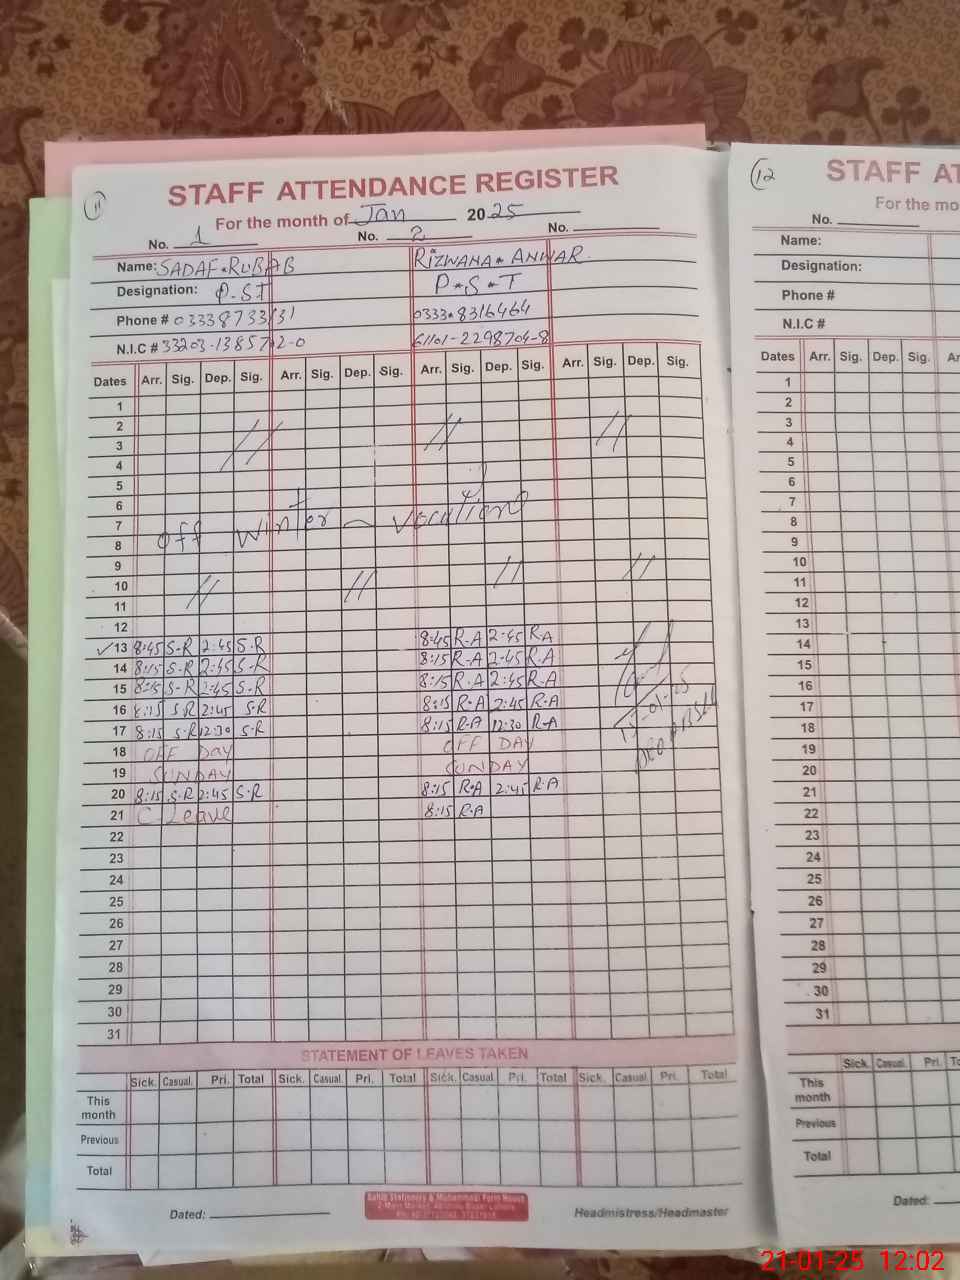 11
STAFF ATTENDANCE REGISTER
For the month of Jan 2025
No. 1 No. 2 No.
Name: SADAF RUBAB RIZWANA ANWAR
Designation: P.S.T P.S.T
Phone # 03338733131 0333.8316464
N.I.C # 33203-1385712-0 61101-2298704-8
Dates Arr. Sig. Dep. Sig. Arr. Sig. Dep. Sig. Arr. Sig. Dep. Sig. Arr. Sig. Dep. Sig.
1
2
3
4
5
6
7 off winter vocation
8
9
10
11
12
13 8:45 S-R 2:45 S-R 8:45 R-A 2:45 R-A
14 8:15 S-R 2:45 S-R 8:15 R-A 2:45 R-A
15 8:15 S-R 2:45 S-R 8:15 R-A 2:45 R-A
16 8:15 S-R 2:45 S-R 8:15 R-A 2:45 R-A
17 8:15 S-R 12:30 S-R 8:15 R-A 12:30 R-A
18 OFF Day OFF DAY
19 SUNDAY SUNDAY
20 8:15 S-R 2:45 S-R 8:15 R-A 2:45 R-A
21 C-Leave 8:15 R-A
22
23
24
25
26
27
28
29
30
31
STATEMENT OF LEAVES TAKEN
Sick. Casual. Pri. Total Sick. Casual. Pri. Total Sick. Casual Pri. Total Sick. Casual Pri. Total
This month
Previous
Total
Dated: Headmistress/Headmaster
12
STAFF AT
For the mo
No.
Name:
Designation:
Phone #
N.I.C #
Dates Arr. Sig. Dep. Sig. Ar
1
2
3
4
5
6
7
8
9
10
11
12
13
14
15
16
17
18
19
20
21
22
23
24
25
26
27
28
29
30
31
Sick. Casual. Pri. To
This month
Previous
Total
Dated:
21-01-25 12:02